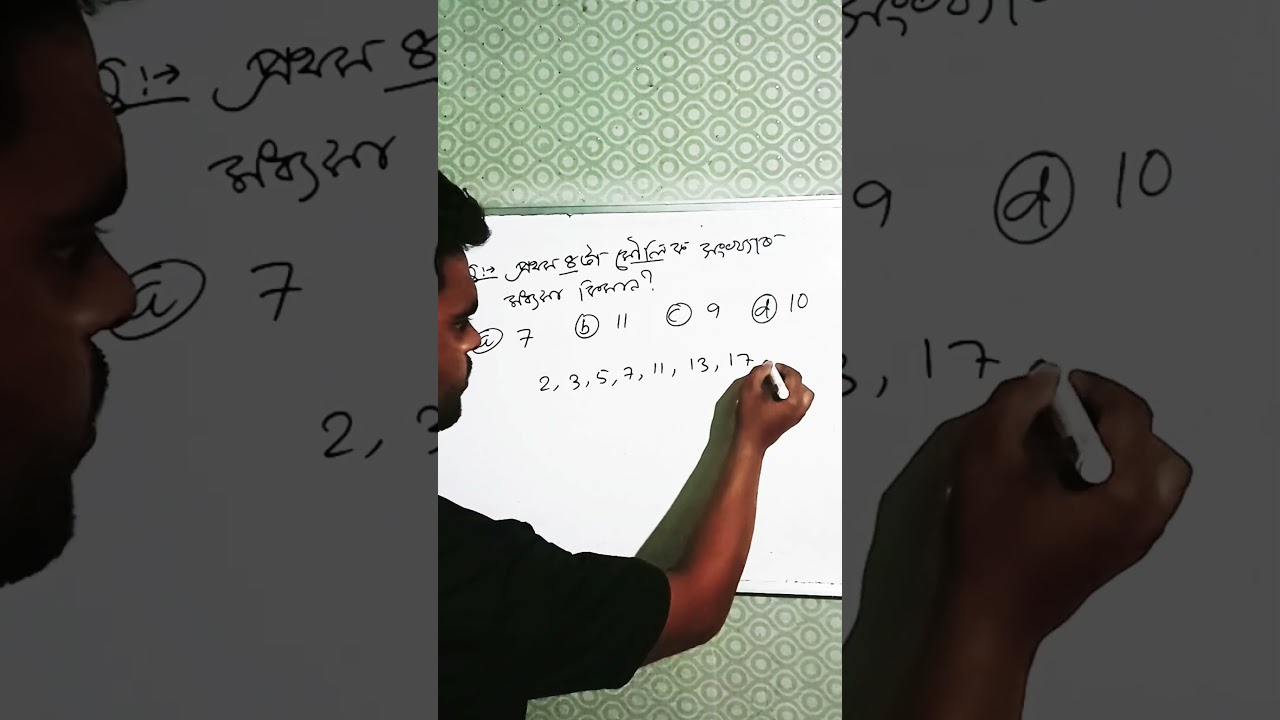 Q:→ প্ৰথম ৪টা মৌলিক সংখ্যাৰ
মধ্যমা কিমান?
(a) 7 (b) 11 (c) 9 (d) 10
2, 3, 5, 7, 11, 13, 17